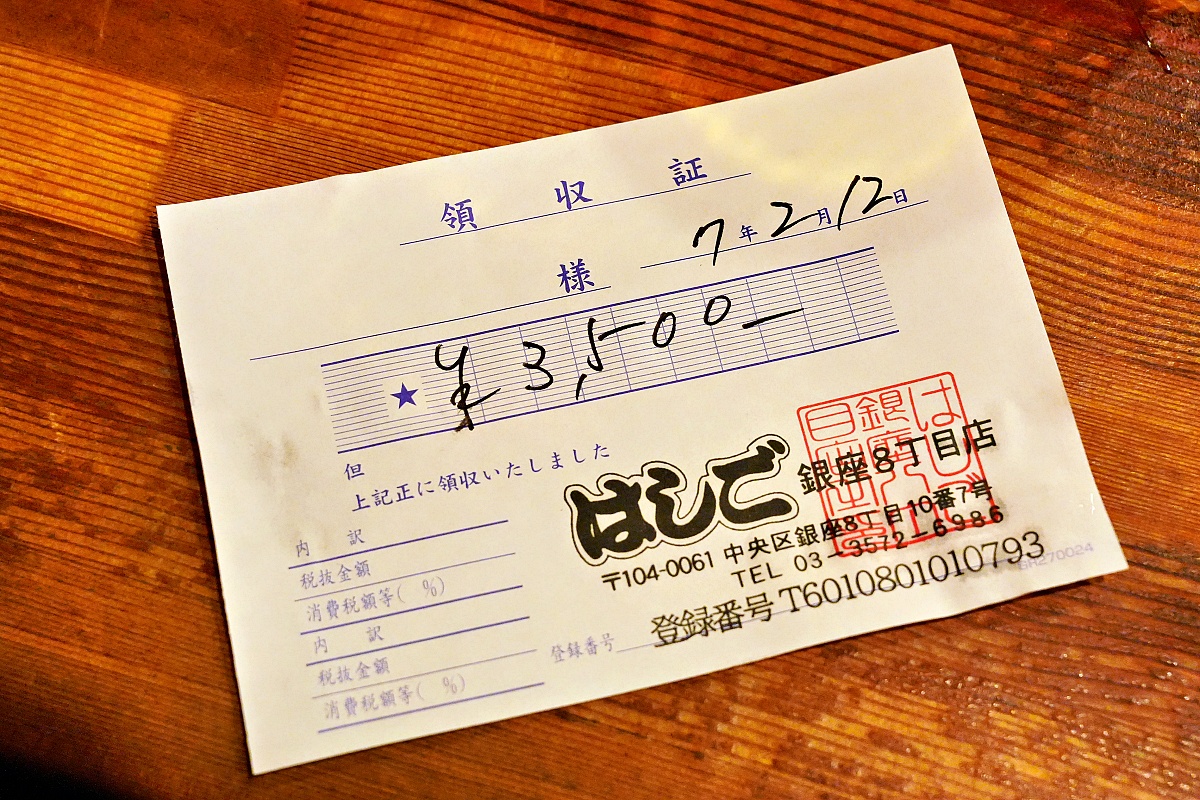 領収証
7年2月12日
様
★ ¥3,500—
但
上記正に領収いたしました
はしご 銀座8丁目店
〒104-0061 中央区銀座8丁目10番7号
TEL 03-3572-6986
登録番号 T6010801010793
内訳
税抜金額
消費税額等( %)
内訳
税抜金額
消費税額等( %)
登録番号